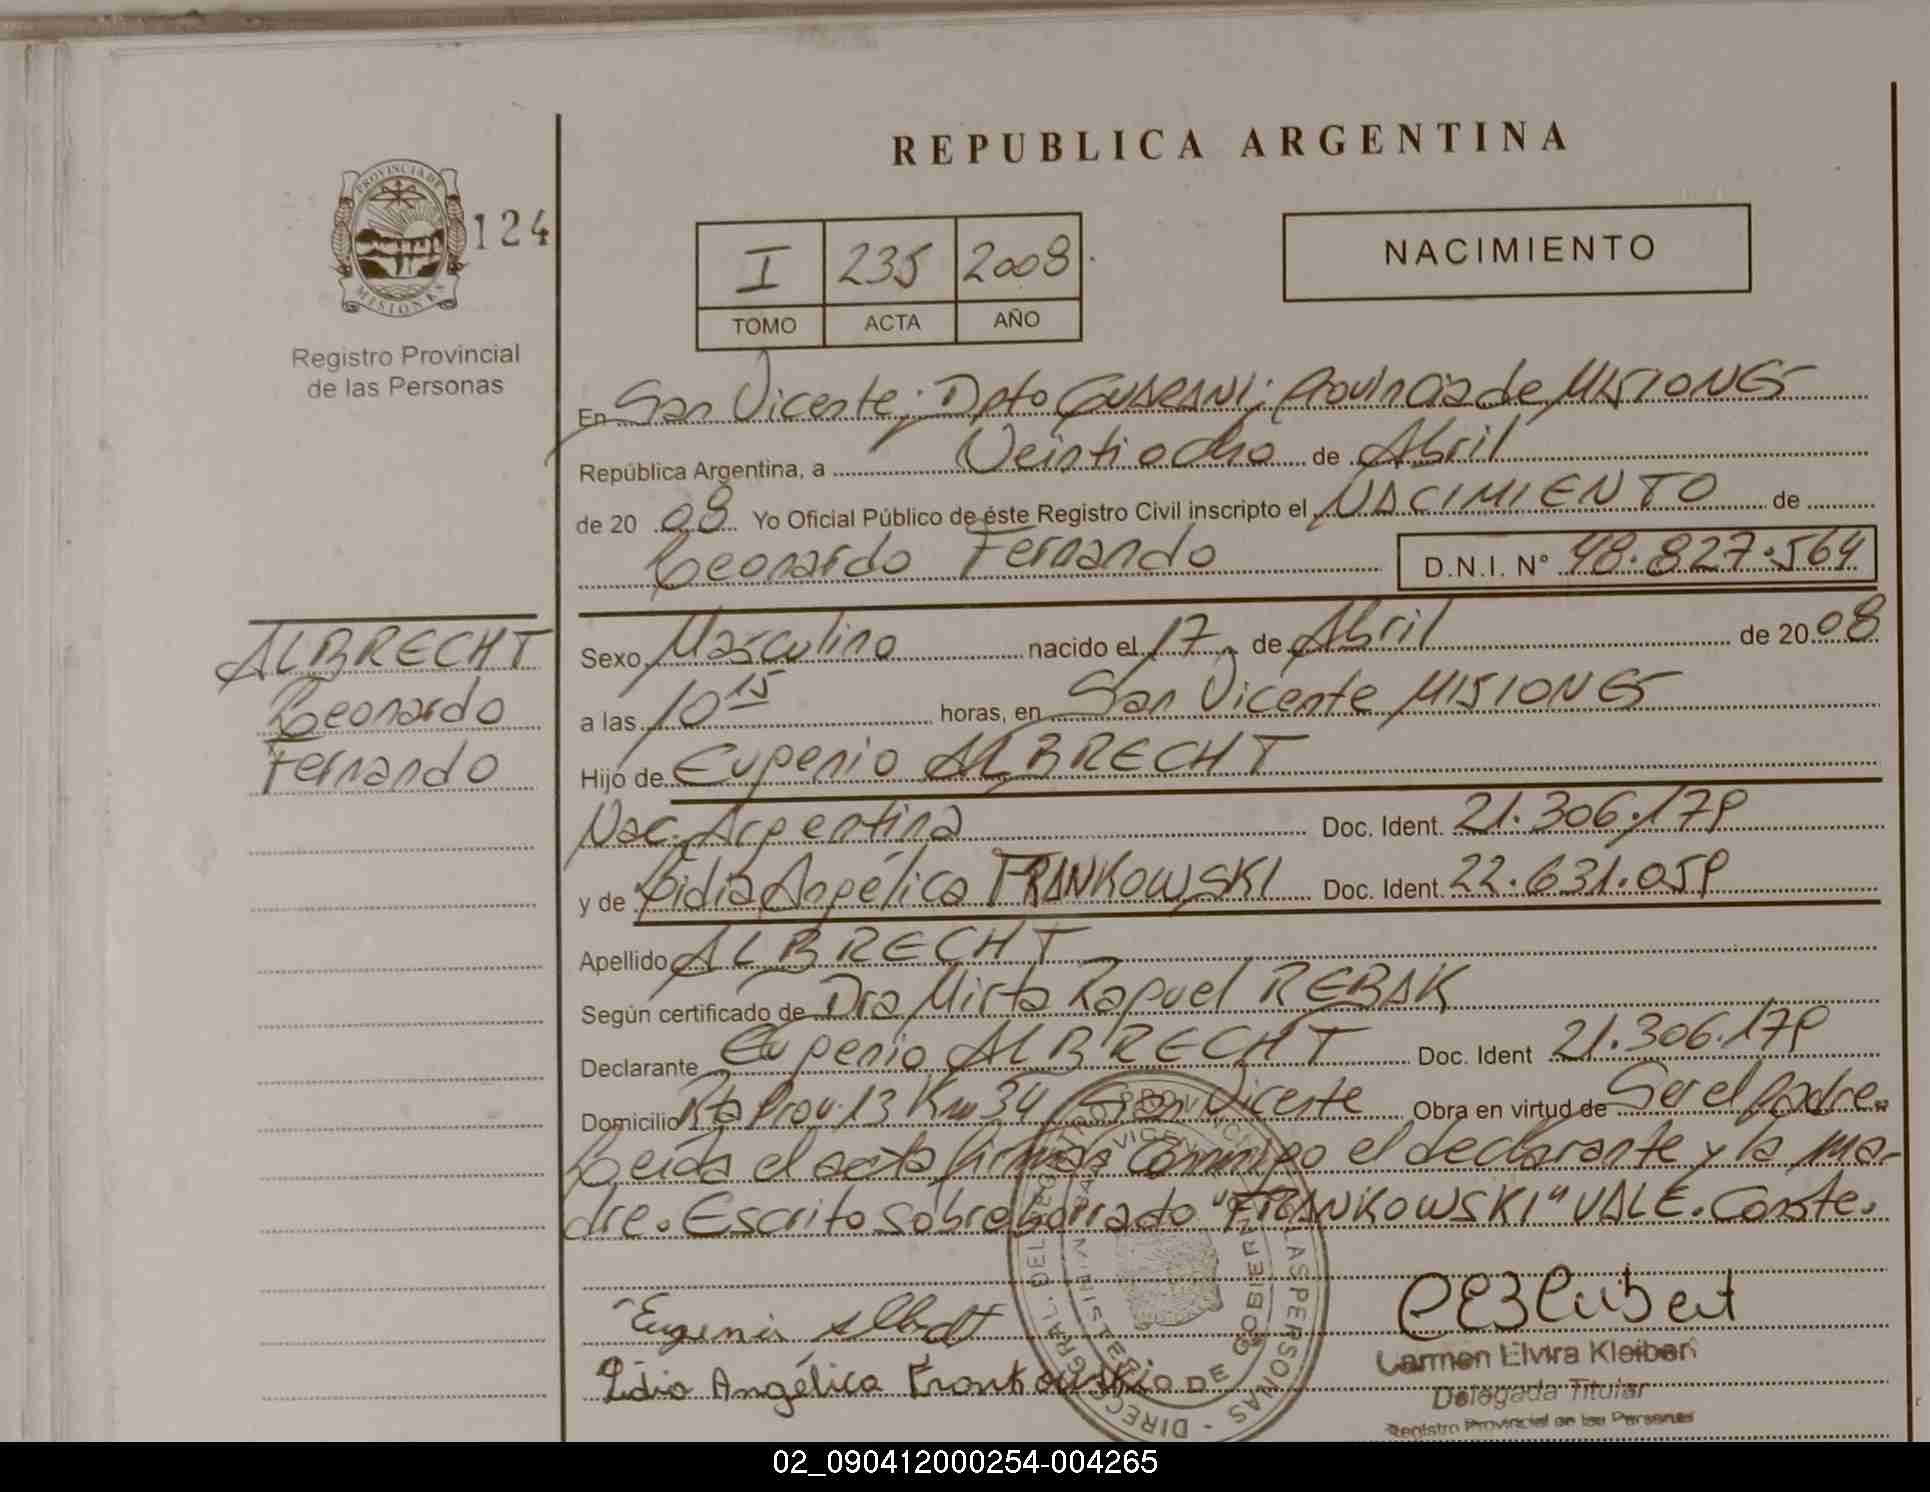 REPUBLICA ARGENTINA
PROVINCIA DE
MISIONES
124
Registro Provincial
de las Personas
I 235 2008
TOMO ACTA AÑO
NACIMIENTO
En San Vicente; Dpto GUARANI; Provincia de MISIONES
República Argentina, a Veintiocho de Abril
de 20 08 Yo Oficial Público de éste Registro Civil inscripto el NACIMIENTO de
Leonardo Fernando D.N.I. N° 48.827.564
ALBRECHT
Leonardo
Fernando
Sexo Masculino nacido el 17 de Abril de 20 08
a las 10 15 horas, en San Vicente MISIONES
Hijo de Eugenio ALBRECHT
Nac. Argentina Doc. Ident. 21.306.179
y de Lidia Angélica FRANKOWSKI Doc. Ident. 22.631.059
Apellido ALBRECHT
Según certificado de Dra Mirta Raquel REBAK
Declarante Eugenio ALBRECHT Doc. Ident 21.306.179
Domicilio Rta Prov. 13 Km 34 San Vicente Obra en virtud de Ser el padre.
Leída el acta firman conmigo el declarante y la ma-
dre. Escrito sobreborrado "FRANKOWSKI" VALE. Conste.
Eugenio Albrecht
Lidia Angélica Frankowski
Carmen Elvira Kleiber
Delegada Titular
Registro Provincial de las Personas
02_090412000254-004265